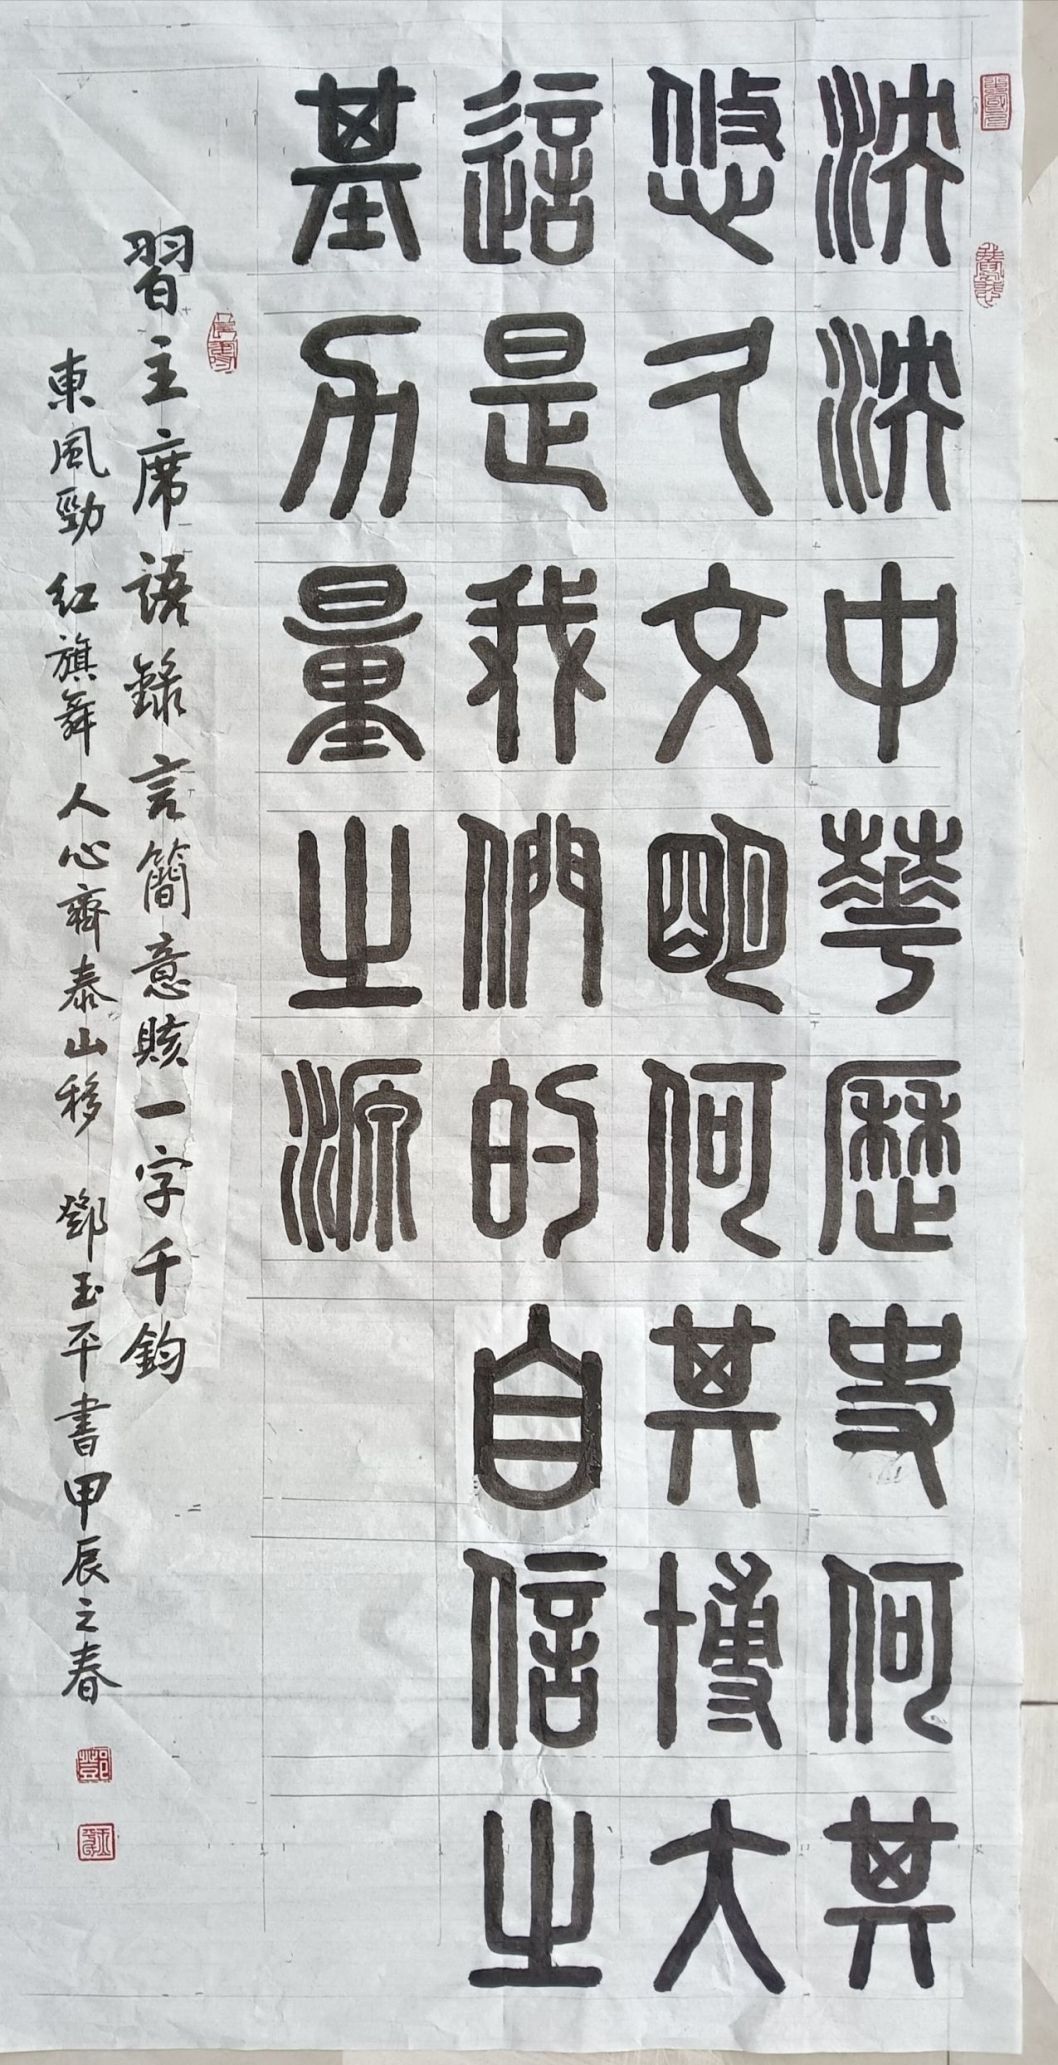 泱泱中華歷史何其
悠久文朙何其博大
這是我們的自信之
基力量之源
習主席語錄言簡意賅一字千鈞
東風勁紅旗舞人心齊泰山移 鄧玉平書甲辰之春